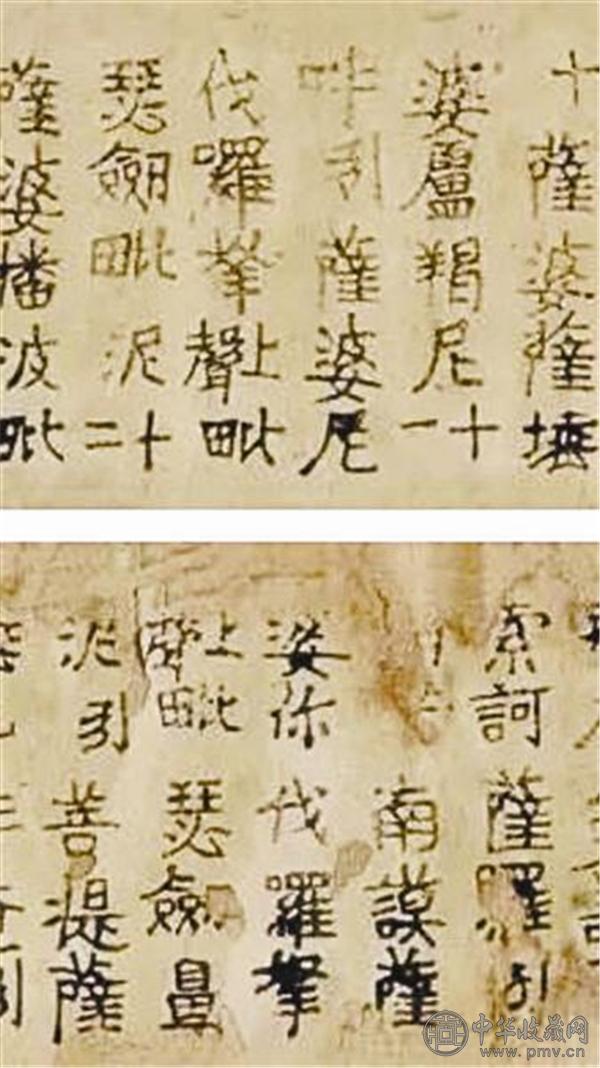 十薩婆薩埵
婆盧羯尼十一
吽引薩婆尼
伐囉拏上聲毗
瑟劒毗泥十二
薩婆播波毗
索訶薩羅引
南謨薩
婆你伐羅拏
上聲毗瑟劒
泥引菩湜薩
中华收藏网
www.pmv.cn